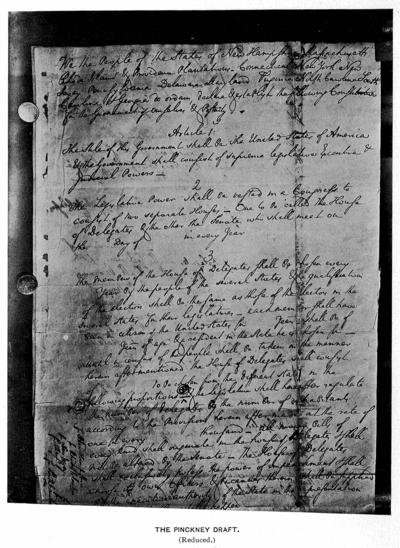 We the People of the States of New Hampshire Massachusetts
Rhode Island & Providence Plantations Connecticut New York New
Jersey Pennsylvania Delaware Maryland Virginia North Carolina South
Carolina & Georgia do ordain, declare & establish the following Constitution
for the Government of ourselves & Posterity.
Article 1:
The Stile of this Government shall be The United States of America
& the Government shall consist of supreme legislative Executive &
Judicial Powers —
2
The Legislative Power shall be vested in a Congress to
consist of two separate Houses — One to be called the House
of Delegates & the other the Senate who shall meet on
the Day of in every Year
3
The members of the House of Delegates shall be chosen every
Year by the people of the several States & the qualification
of the electors shall be the same as those of the Electors in the
several States for their legislatures — each member shall have
been a citizen of the United States for Years shall be of
Years of age & a resident in the State he is chosen for —
until a census of the people shall be taken in the manner
herein after mentioned the House of Delegates shall consist
of to be chosen from the different States in the
following proportions
the number of Delegates by the number of inhabitants
according to the Provisions herein after made, at the rate of
one for every thousand — all money bills of
every kind shall originate in the house of Delegates & shall
not be altered by the Senate — The House of Delegates
shall exclusively possess the power of impeachment & shall
choose its own Officers
the executive authority of the State in the representation
THE PINCKNEY DRAFT.
(Reduced.)